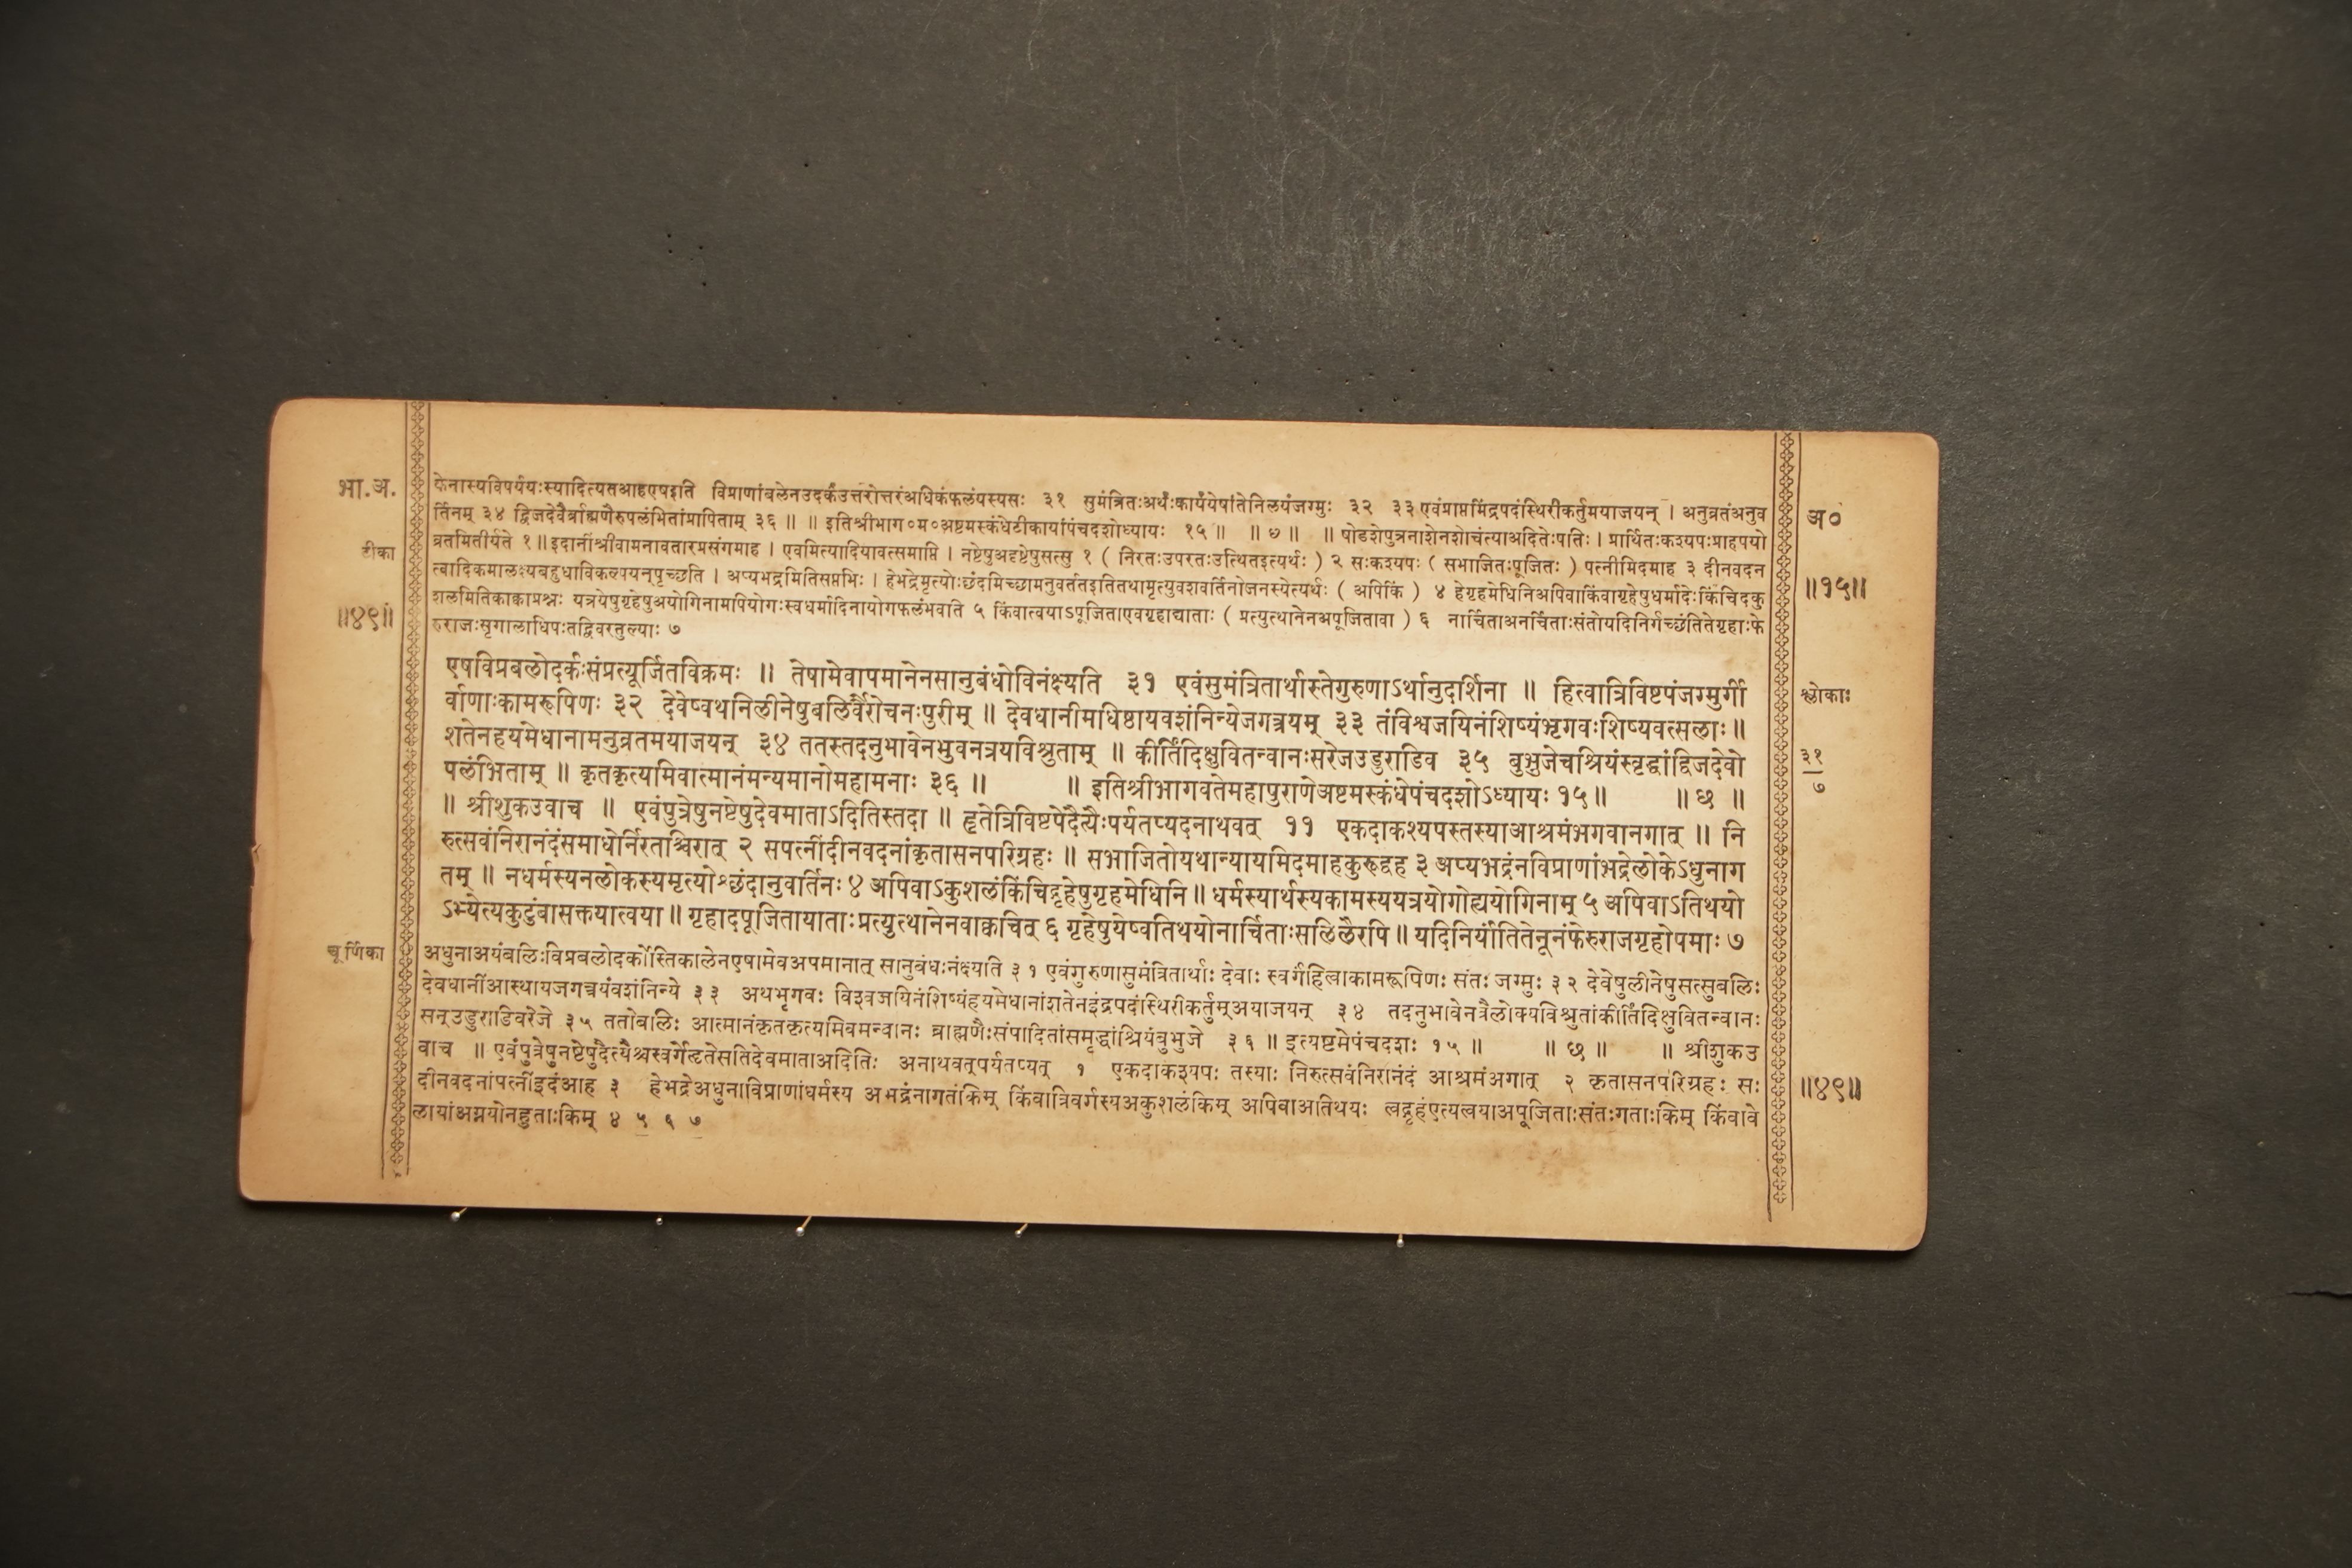 भा.अ.
टीका
॥४९॥
चूर्णिका
केनास्यविपर्ययःस्यादित्यतआहएषइति विप्राणांबलेनउदर्कउत्तरोत्तरंअधिकंफलंयस्यसः ३१ सुमंत्रितःअर्थःकार्यंयेषांतेनिलयंजग्मुः ३२ ३३ एवंप्राप्तमिंद्रपदंस्थिरीकर्तुमयाजयन् । अनुव्रतंअनुव
र्तिनम् ३४ द्विजदेवैर्ब्राह्मणैरुपलंभितांप्रापिताम् ३६ ॥ ॥ इतिश्रीभाग०म०अष्टमस्कंधेटीकायांपंचदशोध्यायः १५ ॥ ॥ ७ ॥ ॥ षोडशेपुत्रनाशेनशोचंत्याअदितेःपतिः । प्रार्थितःकश्यपःप्राहपयो
व्रतमितीर्यते १ ॥ इदानींश्रीवामनावतारप्रसंगमाह । एवमित्यादियावत्समाप्ति । नष्टेषुअदृष्टेषुसत्सु १ ( निरतःउपरतःउत्थितइत्यर्थः ) २ सःकश्यपः ( सभाजितःपूजितः ) पत्नीमिदमाह ३ दीनवदन
त्वादिकमालक्ष्यबहुधाविकल्पयन्पृच्छति । अप्यभद्रमितिसप्तभिः । हेभद्रेमृत्योःछंदमिच्छामनुवर्ततइतितथामृत्युवशवर्तिनोजनस्येत्यर्थः ( अपिकिं ) ४ हेगृहमेधिनिअपिवाकिंवागृहेषुधर्मादेःकिंचिदकु
शलमितिकाकाप्रश्नः यत्रयेषुगृहेषुअयोगिनामपियोगःस्वधर्मादिनायोगफलंभवति ५ किंवात्वयाऽपूजिताएवगृहाद्याताः ( प्रत्युत्थानेनअपूजितावा ) ६ नार्चिताअनर्चिताःसंतोयदिनिर्गच्छंतितेगृहाःफे
रुराजःसृगालाधिपःतद्विवरतुल्याः ७
एषविप्रबलोदर्कःसंप्रत्यूर्जितविक्रमः ॥ तेषामेवापमानेनसानुबंधोविनंक्ष्यति ३१ एवंसुमंत्रितार्थास्तेगुरुणाऽर्थानुदर्शिना ॥ हित्वात्रिविष्टपंजग्मुर्गी
र्वाणाःकामरूपिणः ३२ देवेष्वथनिलीनेषुबलिर्वैरोचनःपुरीम् ॥ देवधानीमधिष्ठायवशंनिन्येजगत्त्रयम् ३३ तंविश्वजयिनंशिष्यंभृगवःशिष्यवत्सलाः ॥
शतेनहयमेधानामनुव्रतमयाजयन् ३४ ततस्तदनुभावेनभुवनत्रयविश्रुताम् ॥ कीर्तिंदिक्षुवितन्वानःसरेजउडुराडिव ३५ बुभुजेचश्रियंस्वृद्धांद्विजदेवो
पलंभिताम् ॥ कृतकृत्यमिवात्मानंमन्यमानोमहामनाः ३६ ॥ ॥ इतिश्रीभागवतेमहापुराणेअष्टमस्कंधेपंचदशोऽध्यायः १५ ॥ ॥ छ ॥
॥ श्रीशुकउवाच ॥ एवंपुत्रेषुनष्टेषुदेवमाताऽदितिस्तदा ॥ हृतेत्रिविष्टपेदैत्यैःपर्यतप्यदनाथवत् ११ एकदाकश्यपस्तस्याआश्रमंभगवानगात् ॥ नि
रुत्सवंनिरानंदंसमाधोर्निरताश्चिरात् २ सपत्नींदीनवदनांकृतासनपरिग्रहः ॥ सभाजितोयथान्यायमिदमाहकुरूद्वह ३ अप्यभद्रंनविप्राणांभद्रेलोकेऽधुनाग
तम् ॥ नधर्मस्यनलोकस्यमृत्योश्छंदानुवर्तिनः ४ अपिवाऽकुशलंकिंचिद्गृहेषुगृहमेधिनि ॥ धर्मस्यार्थस्यकामस्ययत्रयोगोह्ययोगिनाम् ५ अपिवाऽतिथयो
ऽभ्येत्यकुटुंबासक्तयात्वया ॥ गृहादपूजितायाताःप्रत्युत्थानेनवाक्वचित् ६ गृहेषुयेष्वतिथयोनार्चिताःसलिलैरपि ॥ यदिनिर्यांतितेनूनंफेरुराजगृहोपमाः ७
अधुनाअयंबलिःविप्रबलोदर्कोस्तिकालेनएषामेवअपमानात् सानुबंधःनंक्ष्यति ३१ एवंगुरुणासुमंत्रितार्थाः देवाः स्वर्गंहित्वाकामरूपिणः संतः जग्मुः ३२ देवेषुलीनेषुसत्सुबलिः
देवधानींआस्थायजगत्त्रयंवशंनिन्ये ३३ अथभृगवः विश्वजयिनंशिष्यंहयमेधानांशतेनइंद्रपदंस्थिरीकर्तुम्अयाजयन् ३४ तदनुभावेनत्रैलोक्यविश्रुतांकीर्तिंदिक्षुवितन्वानः
सन्उडुराडिवरेजे ३५ ततोबलिः आत्मानंकृतकृत्यमिवमन्वानः ब्राह्मणैःसंपादितांसमृद्धांश्रियंबुभुजे ३६ ॥ इत्यष्टमेपंचदशः १५ ॥ ॥ छ ॥ ॥ श्रीशुकउ
वाच ॥ एवंपुत्रेषुनष्टेषुदैत्यैश्चस्वर्गेहृतेसतिदेवमाताअदितिः अनाथवत्पर्यतप्यत् १ एकदाकश्यपः तस्याः निरुत्सवंनिरानंदं आश्रमंअगात् २ कृतासनपरिग्रहः सः
दीनवदनांपत्नींइदंआह ३ हेभद्रेअधुनाविप्राणांधर्मस्य अभद्रंनागतंकिम् किंवात्रिवर्गस्यअकुशलंकिम् अपिवाअतिथयः त्वद्गृहंएत्यत्वयाअपूजिताःसंतःगताःकिम् किंवावे
लायांअग्नयोनहुताःकिम् ४ ५ ६ ७
अ०
॥१५॥
श्लोकाः
३१
७
॥४९॥